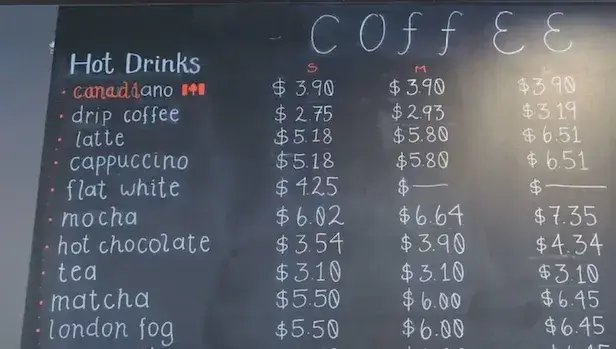 COFFEE
Hot Drinks S M
canadiano $3.90 $3.90 $3.90
drip coffee $2.75 $2.93 $3.19
latte $5.18 $5.80 $6.51
cappuccino $5.18 $5.80 $6.51
flat white $4.25 $— $—
mocha $6.02 $6.64 $7.35
hot chocolate $3.54 $3.90 $4.34
tea $3.10 $3.10 $3.10
matcha $5.50 $6.00 $6.45
london fog $5.50 $6.00 $6.45